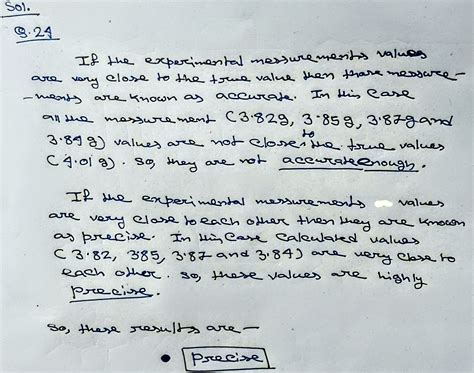 Sol.
Q.24
If the experimental messurements values
are very close to the true value then these messure-
-ments are known as accurate. In this case
all the messurement (3.82g, 3.85g, 3.87g and
3.84g) values are not close to the true values
(4.01g). So, they are not accurate enough.
If the experimental messurements values
are very close to each other then they are known
as precise. In this case calculated values
(3.82, 385, 3.87 and 3.84) are very close to
each other. So, these values are highly
precise.
So, these results are—
• Precise